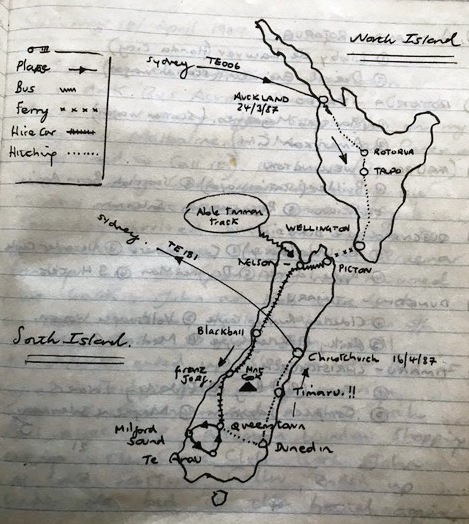 North Island
Plane
Bus
Ferry
Hire Car
Hitching
Sydney
TE006
AUCKLAND
24/3/87
ROTORUA
TAUPO
WELLINGTON
Able Tasman
track
Sydney
TE181
NELSON
PICTON
Blackball
South Island
Franz
Josf.
Mnt
Cook
Christchurch 16/4/87.
Timaru.!!
Milford
Sound
Queenstown
Te Anau
Dunedin